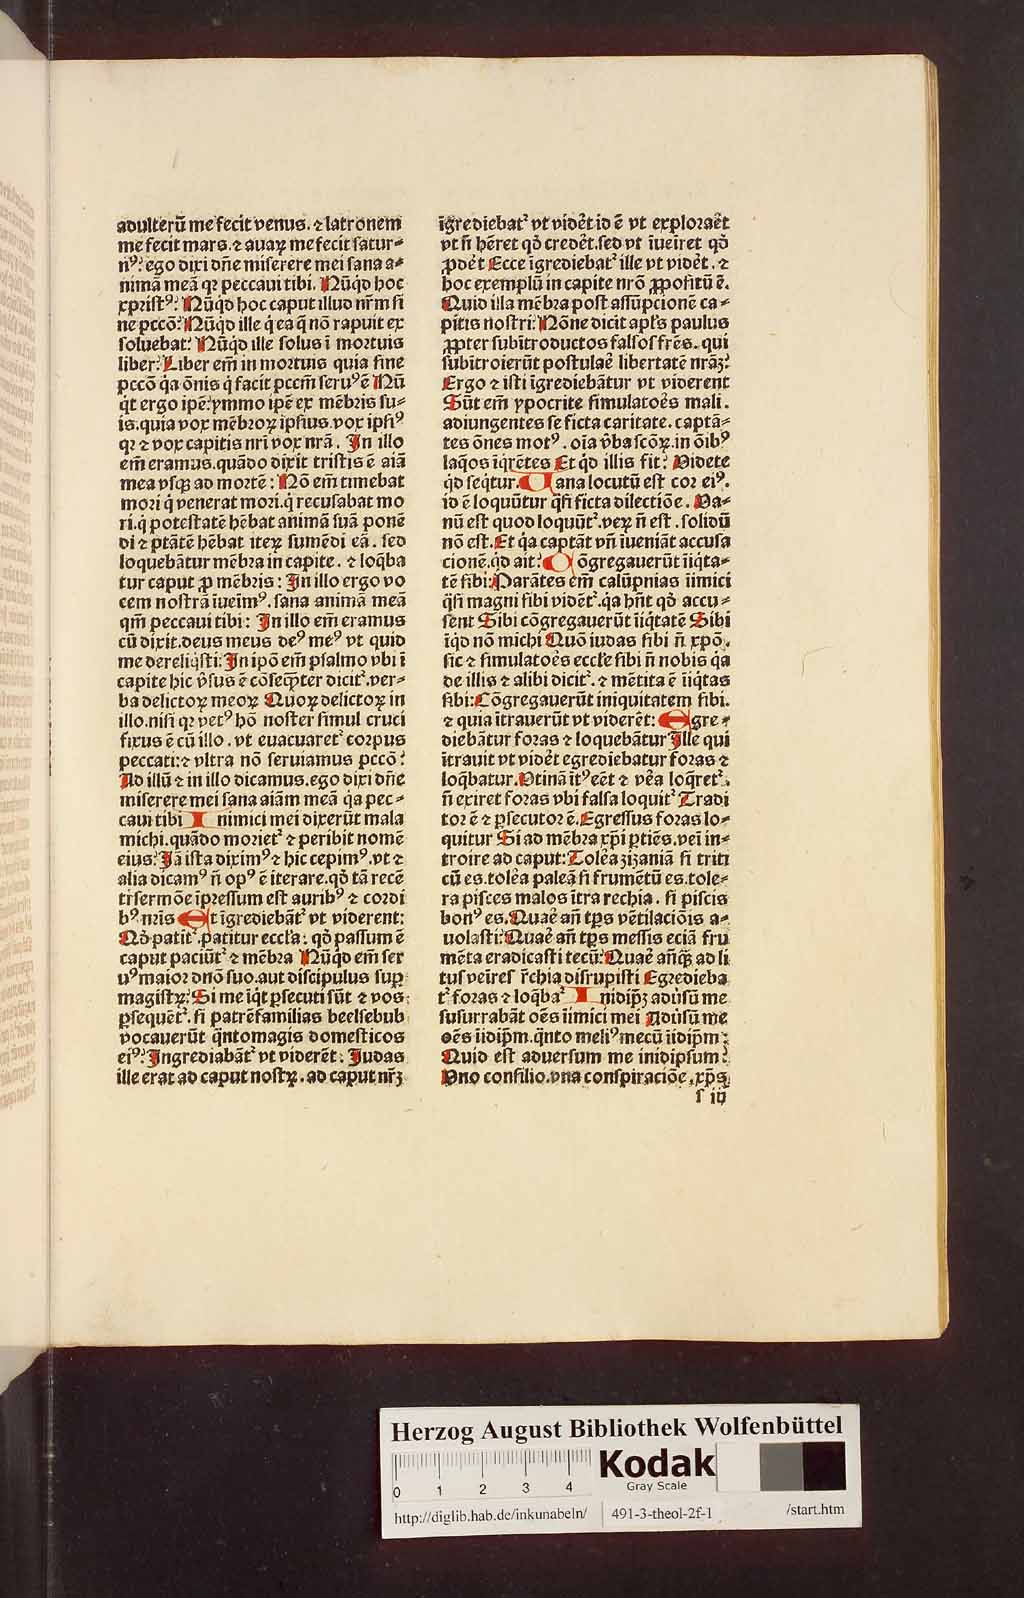 adulterū me fecit venus. ⁊ latronem
me fecit mars. ⁊ auaꝝ me fecit satur⸗
nꝰ: ego dixi dn̄e miserere mei sana a⸗
nimā meā qꝛ peccaui tibi. Nūqd hoc
xpristꝰ: Nūqd hoc caput illud nr̄m si
ne pccō: Nūqd ille q̇ ea q̄ nō rapuit ex
soluebat: Nūqd ille solus ī mortuis
liber: Liber em̄ in mortuis quia sine
pccō q̇a ōnis q̇ facit pccm̄ seruꝰ ē Nū
q̇t ergo ip̄e: ymmo ip̄e ex mēbris su⸗
is. quia vox mēbroꝝ ipsius. vox ipsiꝰ
qꝛ ⁊ vox capitis nr̄i vox nrā. In illo
em̄ eramus. quādo dixit tristis ē aīā
mea vsqꝫ ad mortē: Nō em̄ timebat
mori q̇ venerat mori. q̇ recusabat mo
ri. q̇ potestatē hēbat animā suā ponē
di ⁊ ptātē hēbat iteꝝ sumēdi eā. sed
loquebātur mēbra in capite. ⁊ loq̄ba
tur caput ꝓ mēbris: In illo ergo vo
cem nostrā īueīmꝰ. sana animā meā
qm̄ peccaui tibi: In illo em̄ eramus
cū dixit. deus meus deꝰ meꝰ vt quid
me dereliq̇sti: In ip̄o em̄ psalmo vbi ī
capite hic v̄sus ē cōseq̄nter dicitᷣ. ver⸗
ba delictoꝝ meoꝝ Quoꝝ delictoꝝ in
illo. nisi qꝛ vetꝰ hō noster simul cruci
fixus ē cū illo. vt euacuaretᷣ corpus
peccati: ⁊ vltra nō seruiamus pccō:
Ad illū ⁊ in illo dicamus. ego dixi dn̄e
miserere mei sana aīam meā q̇a pec⸗
caui tibi Inimici mei dixerūt mala
michi. quādo morietᷣ ⁊ peribit nomē
eius: Jā ista diximꝰ ⁊ hic cepimꝰ. vt ⁊
alia dicamꝰ n̄ opꝰ ē iterare. qd̄ tā recē
ti sermōe īpressum est auribꝰ ⁊ cordi
bꝰ nr̄is Et īgrediebātᷣ vt viderent:
Qd̄ patitᷣ. patitur eccl'a: qd̄ passum ē
caput paciūtᷣ ⁊ mēbra Nūqd em̄ ser
uꝰ maior dnō suo. aut discipulus sup̱
magistꝝ: Si me īqt p̱secuti sūt ⁊ vos:
p̱sequētᷣ. si patrēfamilias beelsebub
vocauerūt q̄ntomagis domesticos
eiꝰ: Ingrediabātᷣ vt viderēt: Judas
ille erat ad caput nostꝝ. ad caput nr̄ꝫ
īgrediebatᷣ vt vidēt id ē vt exploraēt
vt n̄ hēret qd̄ credēt. sed vt īueiret qd̄
ꝓdēt Ecce īgrediebatᷣ ille vt vidēt. ⁊
hoc exemplū in capite nrō ꝓpositū ē.
Quid illa mēbra post assūpcionē ca⸗
pitis nostri: Nōne dicit apl's paulus
ꝓpter subītroductos falsos fr̄es. qui
subītroierūt postulaē libertatē nrāꝫ:
Ergo ⁊ isti īgrediebātur vt viderent
Sūt em̄ ypocrite simulatoēs mali.
adiungentes se ficta caritate. captā⸗
tes ōnes motꝰ. oīa v̄ba scōꝝ. in ōibꝰ
laq̇os īq̇rētes Et qd illis fit: Videte
qd seq̄tur. Uana locutū est cor eiꝰ.
id ē loquūtur q̄si ficta dilectiōe. Va⸗
nū est quod loquūtᷣ. veꝝ n̄ est. solidū
nō est. Et q̇a captāt vn̄ īueniāt accusa
cionē. qd ait: Cōgregauerūt īiq̇ta⸗
tē sibi: Parātes em̄ calūpnias īimici
q̄si magni sibi vidētᷣ. q̇a hn̄t qd̄ accu⸗
sent Sibi cōgregauerūt īiq̇tatē Sibi
īqd nō michi Quō iudas sibi n̄ xp̄o.
sic ⁊ simulatoēs eccl'e sibi n̄ nobis q̇a
de illis ⁊ alibi dicitᷣ. ⁊ mētita ē īiq̇tas
sibi: Cōgregauerūt iniquitatem sibi.
⁊ quia ītrauerūt vt viderēt: Egre⸗
diebātur foras ⁊ loquebātur Ille qui
ītrauit vt vidēt egrediebatur foras ⁊
loq̄batur. Vtinā ītꝰ eēt ⁊ vēa loq̄retᷣ.
n̄ exiret foras vbi falsa loquitᷣ Tradi
tor ē ⁊ p̱secutor ē. Egressus foras lo⸗
quitur Si ad mēbra xp̄i p̱tiēs. veī in⸗
troire ad caput: Tolēa zizaniā si triti
cū es. tolēa paleā si frumētū es. tole⸗
ra pisces malos ītra rechia. si piscis
bonꝰ es. Quaē an̄ tp̄s vētilaciōis a⸗
uolasti: Quaē an̄ tp̄s messis eciā fru
mēta eradicasti tecū: Quaē an̄qꝫ ad li
tus veīres r̄chia disrupisti Egredieba
tᷣ foras ⁊ loq̄baᷣ Inidip̄ꝫ adūsū me
susurrabāt oēs īimici mei Adūsū me
oēs īidip̄m. q̄nto meliꝰ mecū īidip̄m:
Quid est aduersum me inidipsum:
Vno consilio. vna conspiraciōe. xp̄s
s iij
Herzog August Bibliothek Wolfenbüttel
0 1 2 3 4
Kodak
Gray Scale
http://diglib.hab.de/inkunabeln/ 491-3-theol-2f-1 /start.htm